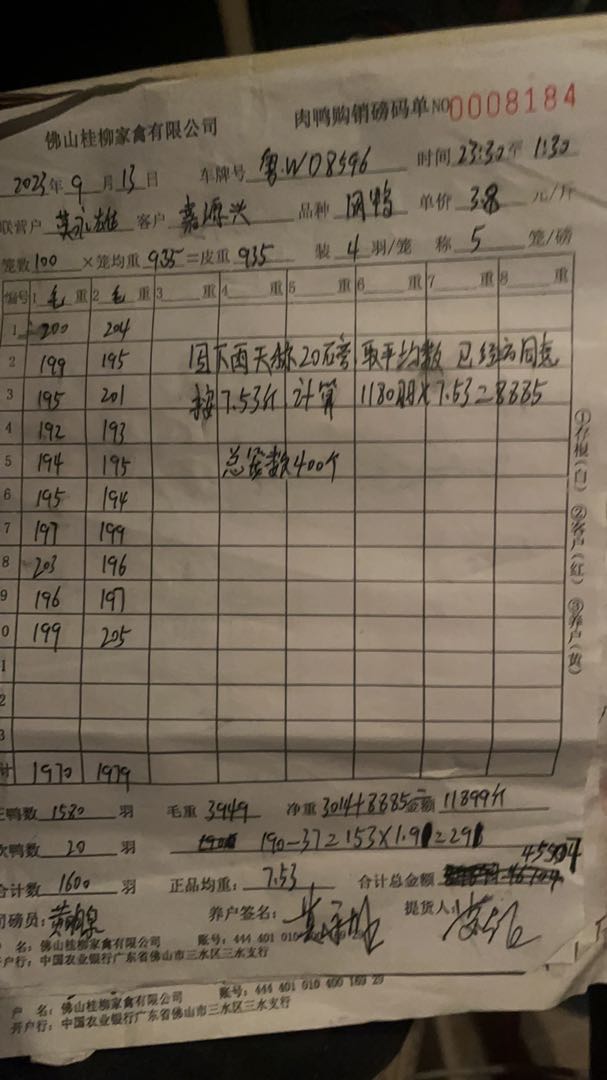 佛山桂柳家禽有限公司 肉鸭购销磅码单 NO 0008184
2023年 9 月 13 日 车牌号 粤.WD8596 时间 23:30 至 1:30
联营户 客户 嘉源兴 品种 单价 3.8 元/斤
笼数 100 ×笼均重 9.35 =皮重 935 装 4 羽/笼 称 5 笼/磅
编号 1 毛 重 2 毛 重 3 重 4 重 5 重 6 重 7 重 8 重
1 200 204
2 199 195 因下西天称20石旁 取平均数 已经
3 195 201 按7.53斤计算 1180羽×7.53=8885
4 192 193
5 194 195 总笼数400个
6 195 194
7 197 199
8 203 196
9 196 197
0 199 205
1
2
3
计 1970 1979
正鸭数 1580 羽 毛重 3949 净重 3014+8885= 金额 11899斤
次鸭数 20 羽 190-37=153×1.9 =291
合计数 1600 羽 正品均重: 7.53 合计总金额 45507
司磅员: 养户签名: 提货人:
户 名: 佛山桂柳家禽有限公司 账号: 444 401 010 400 169 29
开户行: 中国农业银行广东省佛山市三水区三水支行
户 名: 佛山桂柳家禽有限公司 账号: 444 401 010 400 169 29
开户行: 中国农业银行广东省佛山市三水区三水支行
①存根(白) ②客户(红) ③养户(黄)